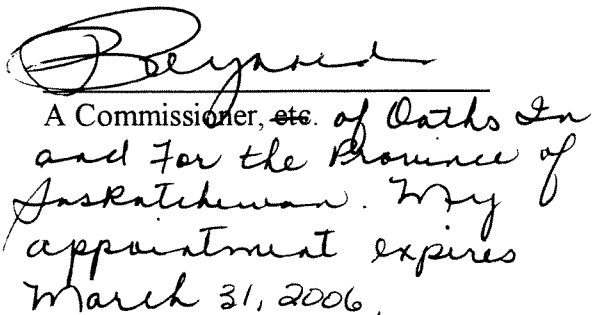 A Commissioner, etc. of Oaths In
and For the Province of
Saskatchewan. My
appointment expires
March 31, 2006.